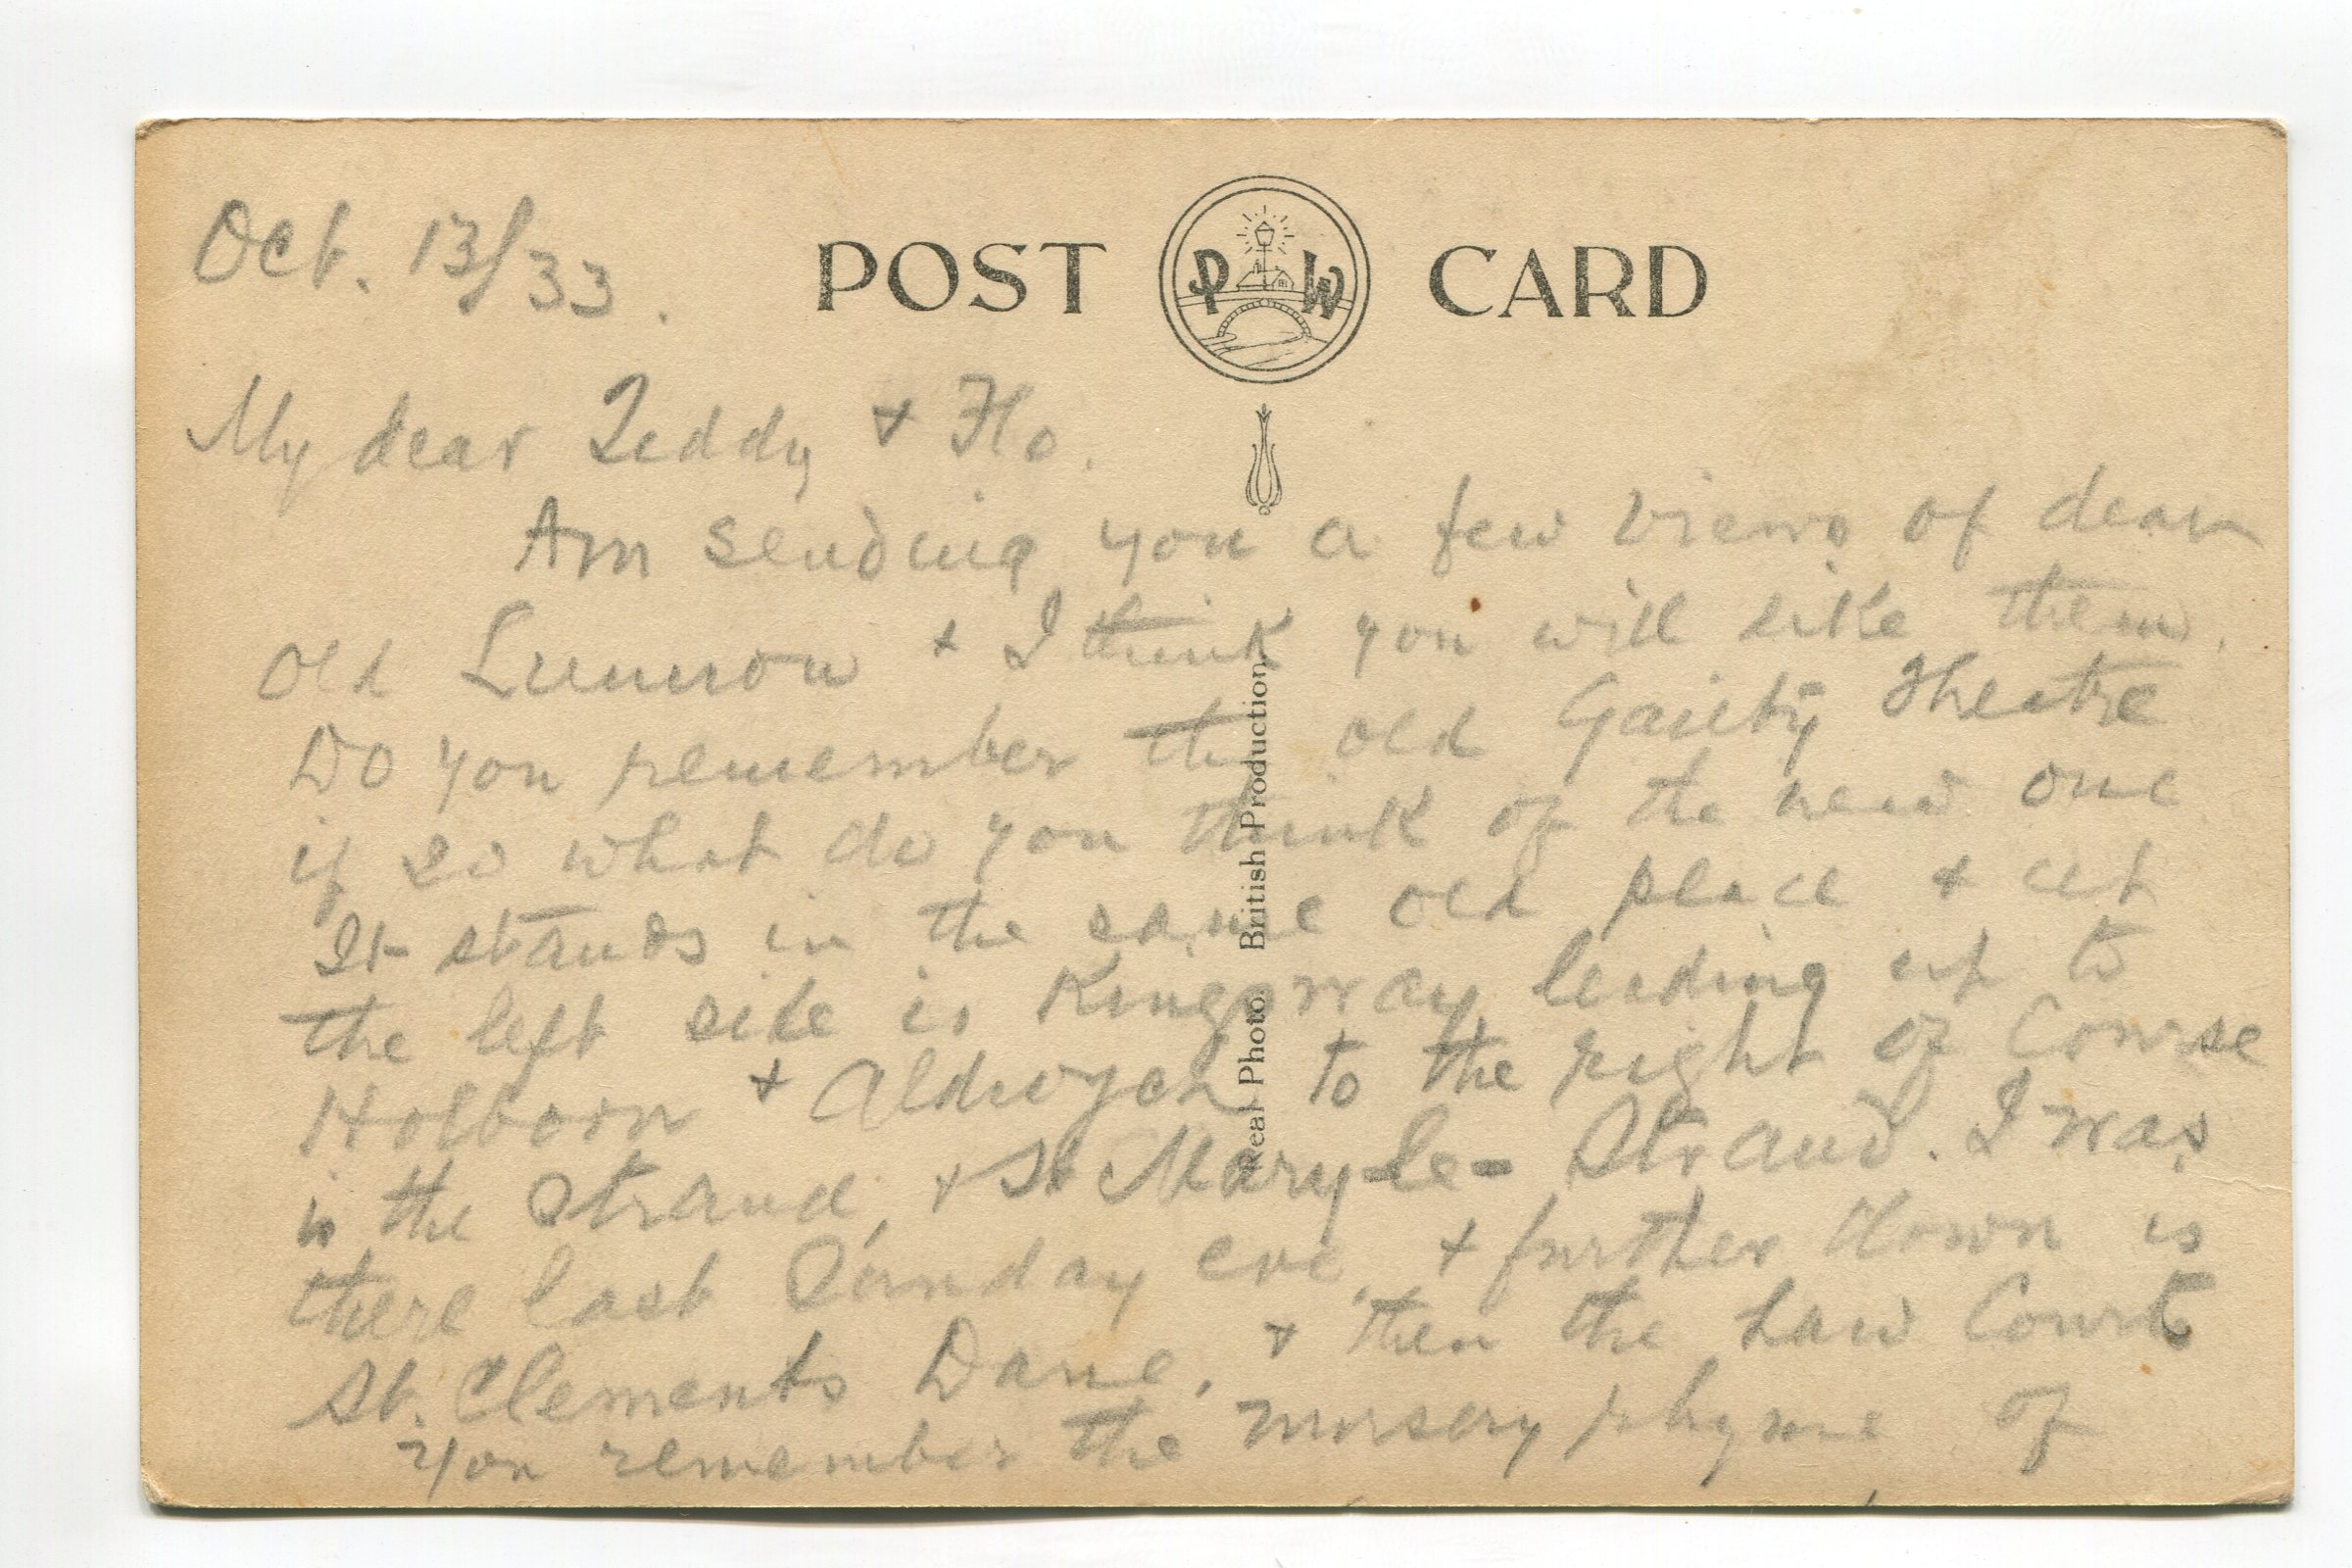 Oct. 13/33.
POST PW CARD
My dear Teddy & Flo.
Am sending you a few views of dear
old Lunnon & I think you will like them.
Do you remember the old Gaiety Theatre
if so what do you think of the new one
It stands in the same old place & at
the left side is Kingsway leading up to
Holborn & Aldwych to the right of Course
is the Strand, & St Mary-le-Strand. I was
there last Sunday eve, & further down is
St. Clements Dane, & then the Law Courts
You remember the nursery rhyme of
Real Photo. British Production